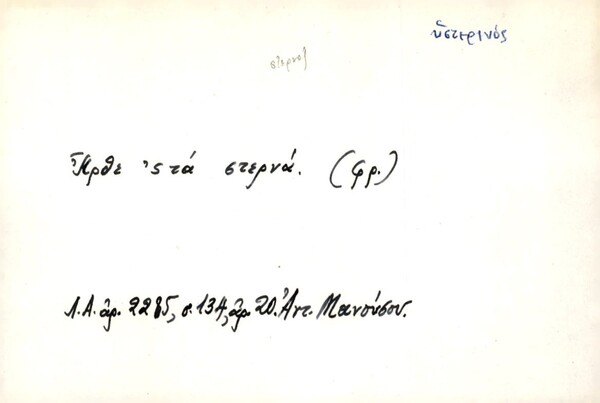 ὑστερινός
στερνά
Ἦρθε 'ς τά στερνά. (φρ.)
Λ.Α. ἀρ. 2285, σ. 134, ἀρ. 20. Ἀντ. Μανούσου.